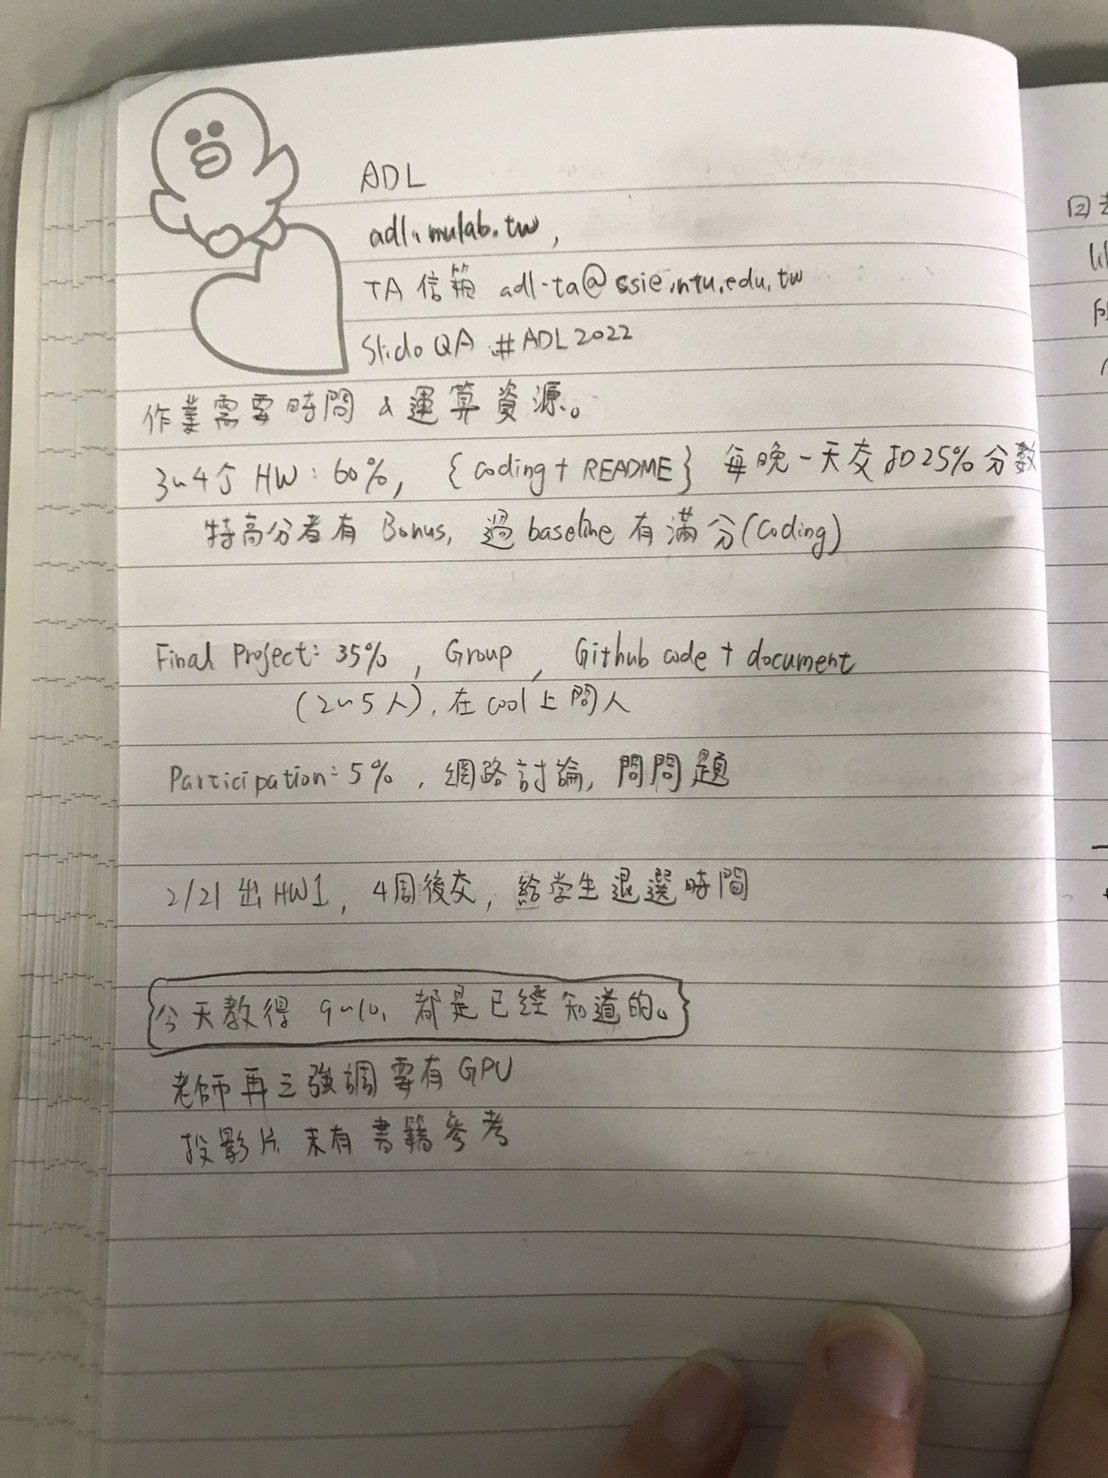 ADL
adl.mulab.tw,
TA 信箱 adl-ta@csie.ntu.edu.tw
Slido QA #ADL2022
作業需要時間 & 運算資源。
3~4个 HW: 60%, {coding + README} 每晚一天交扣25%分數
特高分者有 Bonus, 過 baseline 有滿分(coding)
Final Project: 35%, Group, Github code + document
(2~5人), 在 cool 上問人
Participation: 5%, 網路討論, 問問題
2/21 出 HW1, 4周後交, 給學生退選時間
{今天教得 9~10, 都是已經知道的。}
老師再三強調要有 GPU
投影片末有書籍參考
回